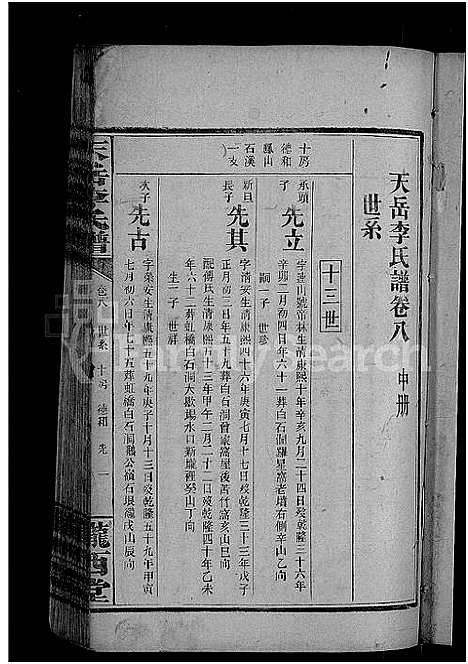 天岳李氏譜卷八 中册
世系
十房
德和
鳳山
石溪
一支
十三世
承頭
子
先立
字連山號帝林生清康熙十年辛亥九月二十四日歿乾隆三十六年
辛卯二月初四日年六十二葬白石洞羅星嵩老墳右側辛山乙向
嗣一子 世珍
新日
長子
先其
字清安生清康熙四十六年庚寅七月十七日歿乾隆三十三年戊子
正月初三日年五十九葬白石洞曾家嵩屋後苦竹嵩亥山巳向
配傅氏生清康熙五十三年甲午二月二十二日歿乾隆四十年乙未
年六十二葬虹橋白石洞大歇場水口新壠裡癸山丁向
生一子 世群
次子
先古
字榮安生清康熙五十九年庚子十月十三日歿乾隆五十九年甲寅
七月初六日年七十五葬虹橋白石洞鵝公嶺石垠磡戌山辰向
天岳李氏譜
卷八 世系 十房 德和 先 一
隴西堂
FamilySearch